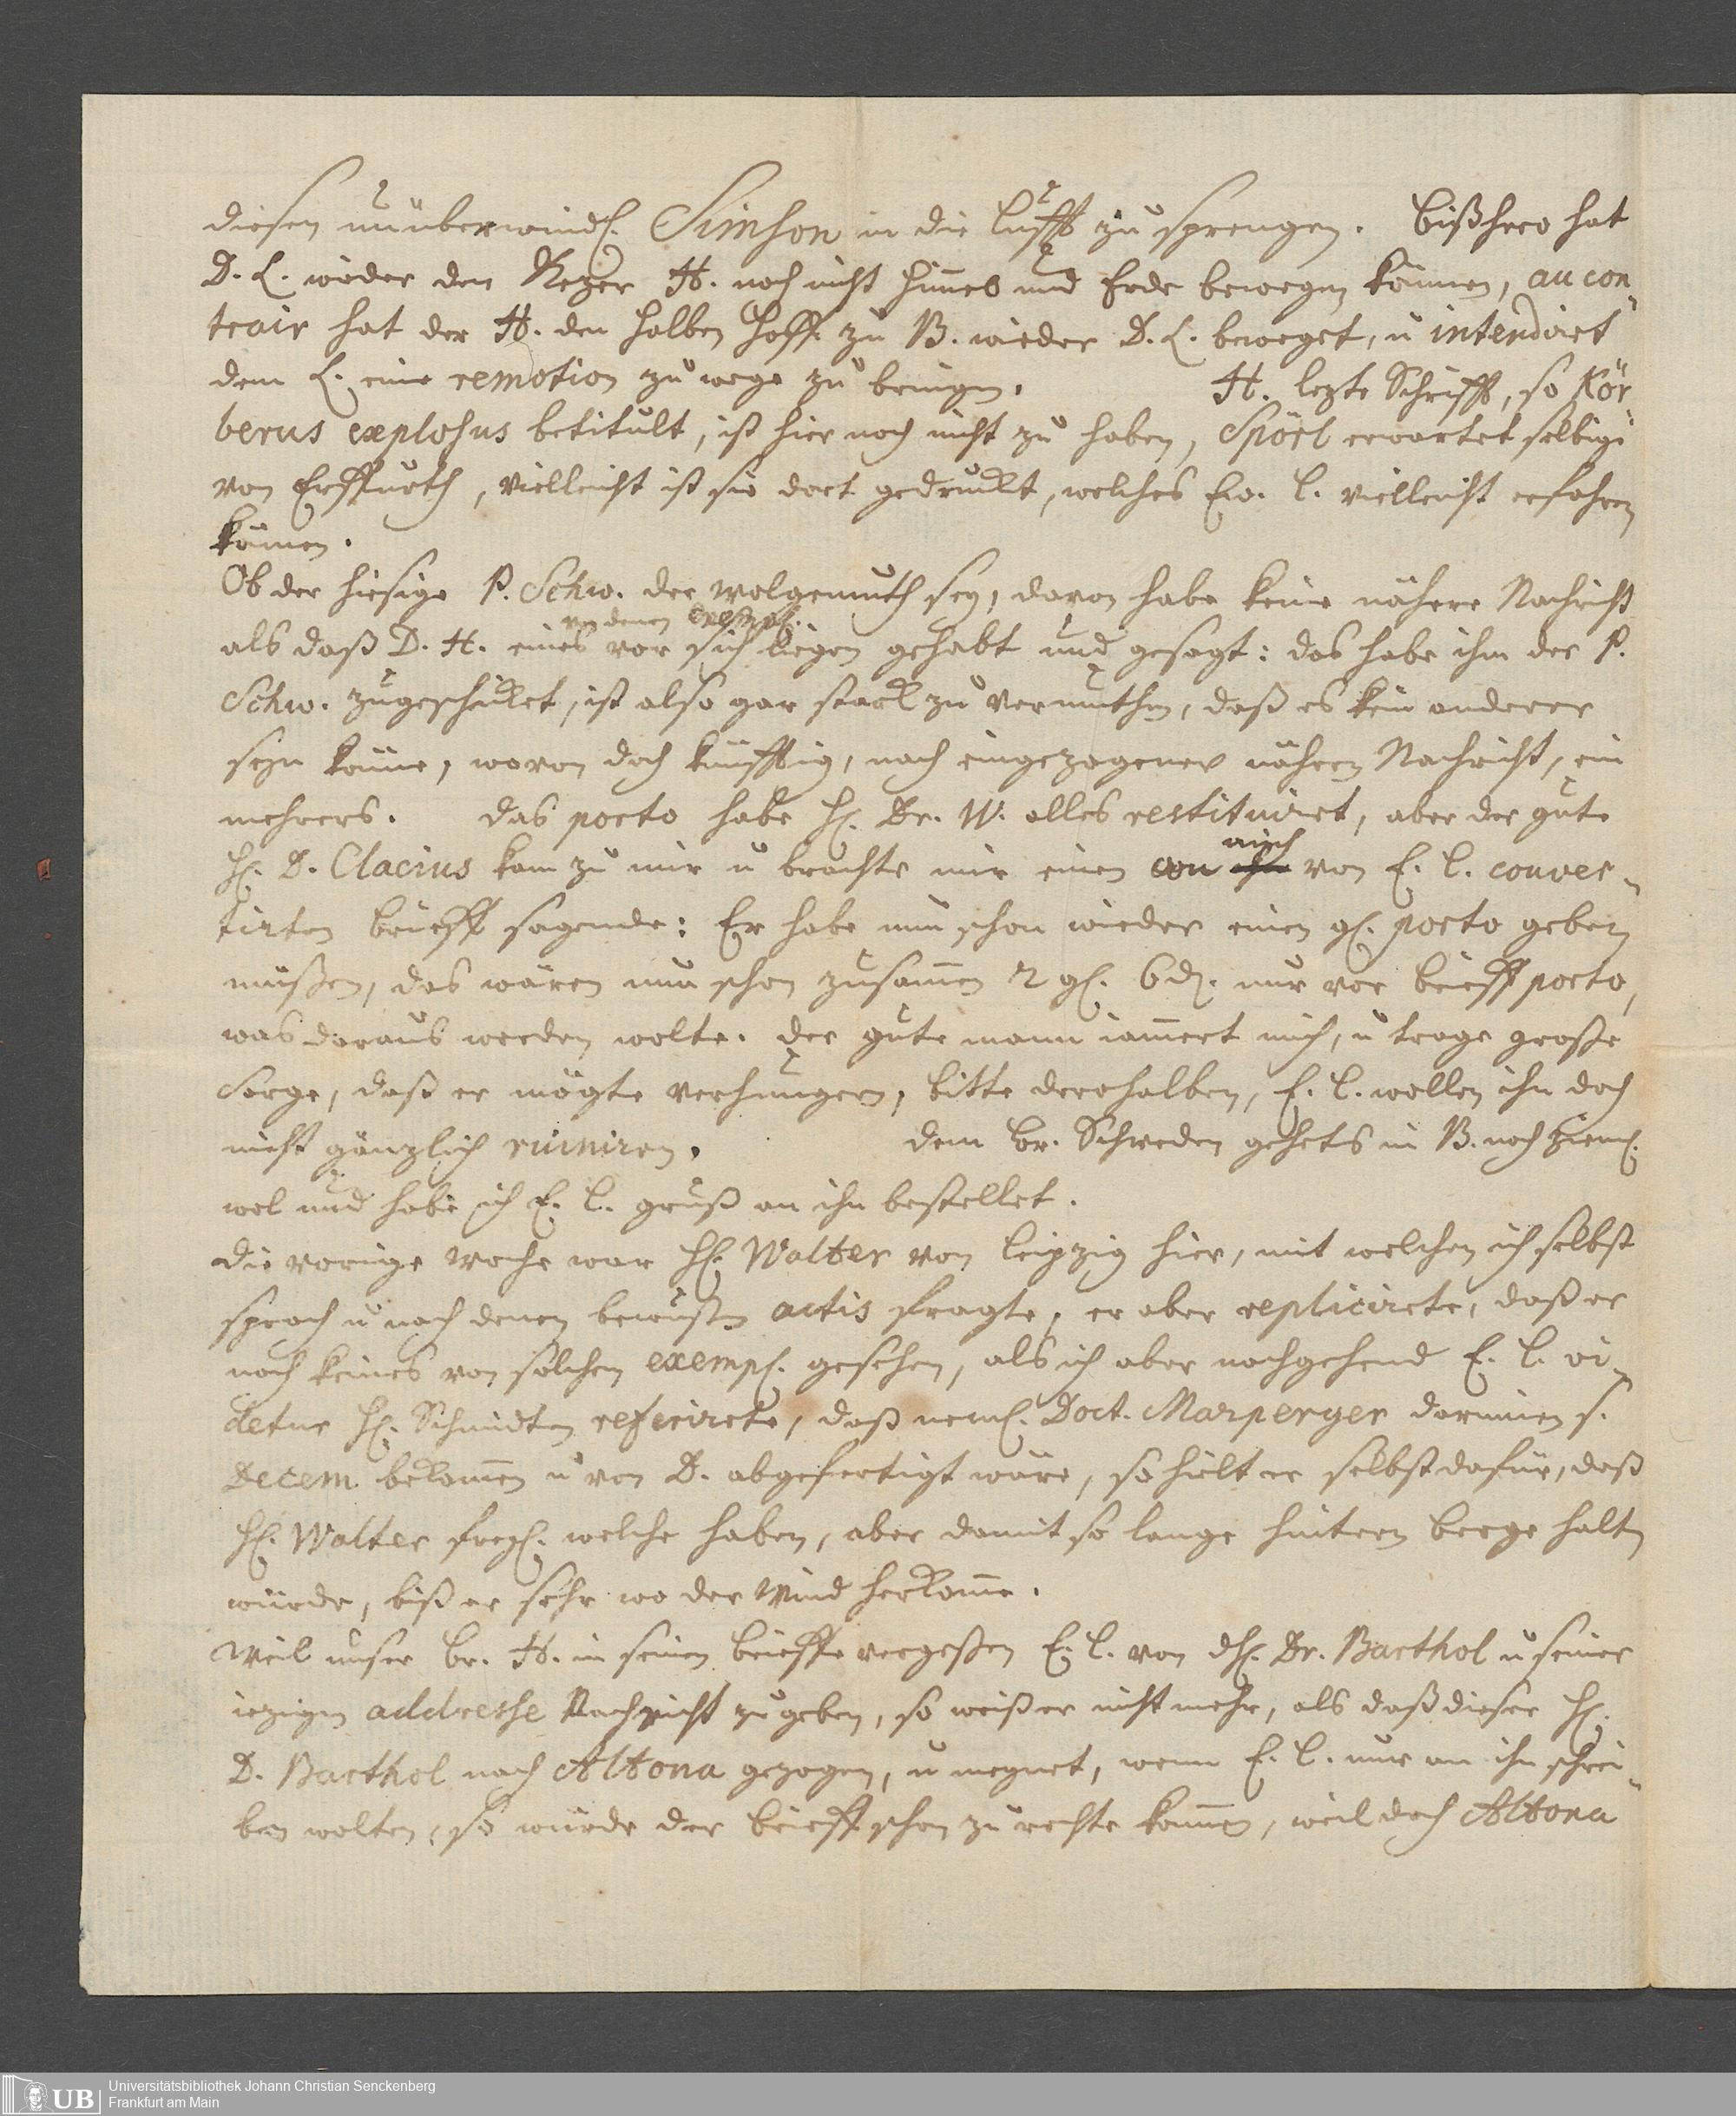 diesen unüberwindl. Simson in die Lufft zu sprengen. Bißhero hat
D. L. wieder den Kezer H. noch nicht Himel und Erde bewegen können, au con„
trair hat der H. den halben Hoff zu B. wieder D. L. beweget, u intendiret
dem L. eine remotion zuwege zu bringen. H. lezte Schrifft, so Kör„
berus explosus betitult, ist hier noch nicht zu haben, Spörl erwartet selbige
von Erffurth, vielleicht ist sie dort gedruckt, welches Ew. L. vielleicht erfahren
können.
Ob der hiesige P. Schw. der Wolgemuth sey, davon habe keine nähere Nachricht
von denen Exempl.
als daß D. H. eines vor sich liegen gehabt und gesagt: das habe ihm der P.
Schw. zugeschicket, ist also gar starck zu vermuthen, daß es kein anderer
seyn könne, wovon doch künfftig, nach eingezogener nähern Nachricht, ein
mehrers. Das porto habe H. Br. W. alles restituiret, aber der gute
auch
H. D. Clacius kam zu mir u brachte mir einen von E. L. couver„
tirten Brieff sagende: Er habe nun schon wieder einen gl. porto geben
müßen, das wären nun schon zusamen 2 gl. 6 d. nur vor Brieff porto,
was daraus werden wolte. Der gute Mann jamert mich, u trage große
Sorge, daß er mögte verhungern, bitte derohalben, E. L. wollen ihn doch
nicht gänzlich ruiniren. Dem Br. Schweden gehets in B. noch zieml.
wol und habe ich E. L. gruß an ihn bestellet.
Die vorige Woche war H. Walther von Leipzig hier, mit welchen ich selbst
sprach u nach denen bewusten actis fragte, er aber replicirete, daß er
noch keines von solchen exempl. gesehen, als ich aber nachgehend E. L. vi„
detur H. Schmidten referirete, daß neml. Doct. Marperger darinnen s.
Decem bekomen u von D. abgefertigt wäre, so hielt er selbst dafür, daß
H. Walter freyl. welche haben, aber damit so lange hintern Berge halten
würde, biß er sehe wo der Wind herkome.
Weil unser Br. H. in seinen Brieffe vergeßen E. L. von H. Dr. Barthol u seiner
iezigen addresse Nachricht zugeben, so weiß er nicht mehr, als daß dieser H.
D. Barthol nach Altona gezogen, u meynet, wenn E. L. nur an ihn schrei„
ben wolten, so würde der Brieff schon zu rechte komen, weil doch Altona
UB
Universitätsbibliothek Johann Christian Senckenberg
Frankfurt am Main